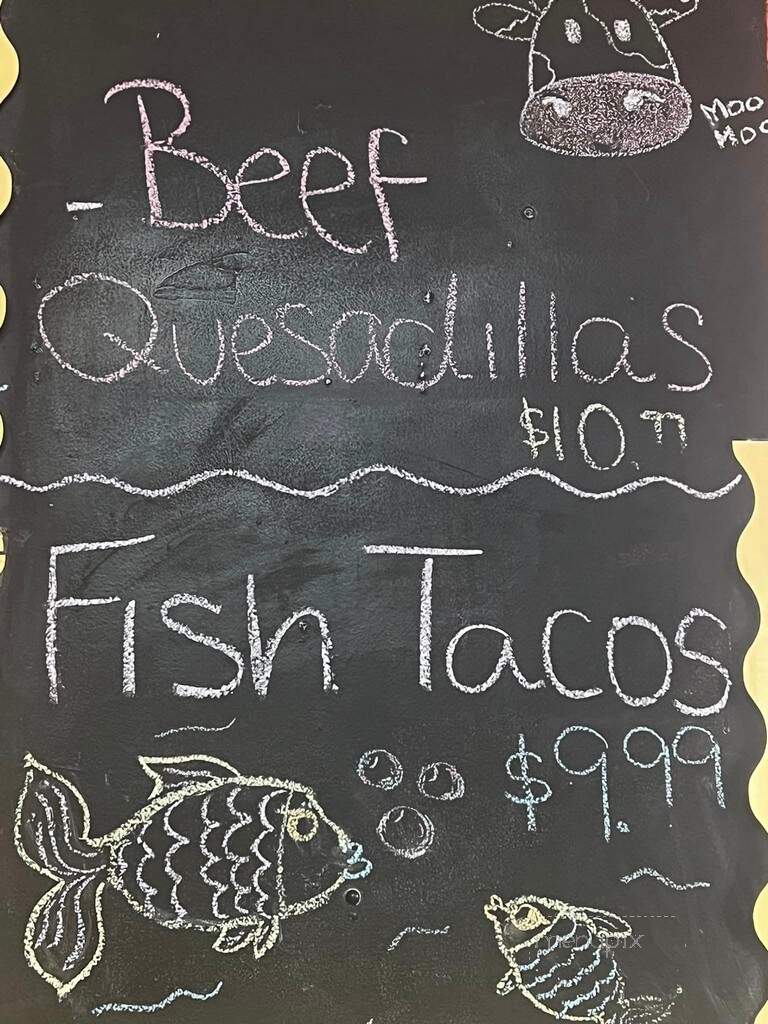 MOO
MOO
- Beef
Quesadillas
Fish Tacos
$9.99
menupix